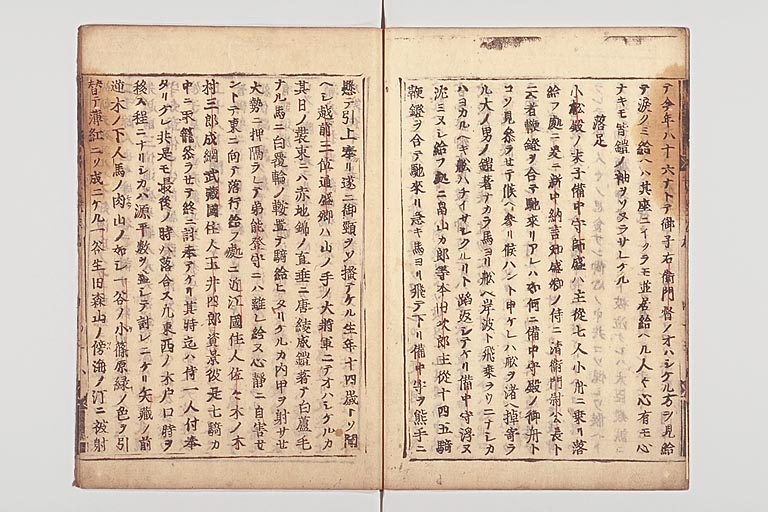 テ今年ハ十六ナトテ御子右衛門督ノオハシケル方ヲ見給
テ涙クミ給ヘハ其座ニイクラモ並居給ヘル人々心有モ心
ナキモ皆鎧ノ袖ヲソヌラサレケル
落足
小松殿ノ末子備中守師盛ハ主從七人小舟ニ乗リ落
給フ處ニ爰ニ新中納言知盛卿ノ侍ニ清衛門尉公長ト
云者鞭鐙ヲ合テ馳來リアレハ如何ニ備中守殿ノ御舟ト
コソ見参ラセテ候ヘ参リ候ハント申ケレハ舩ヲ渚ニ掉寄ラ
ル大ノ男ノ鎧著ナカラ馬ヨリ舩ヘ岸波ト飛乗ラウニナシカ
ハヨカルヘキ舩ハチイサシクルリト踏返シテケリ備中守浮ヌ
沈ミヌシ給フ處ニ畠山カ郎等本田次郎主從十四五騎
鞭鐙ヲ合テ馳來リ急キ馬ヨリ飛テ下リ備中守ヲ熊手ニ
懸テ引上奉リ遂ニ御頸ヲソ掻テケル生年十四歳トソ聞
ヘシ越前三位通盛卿ハ山ノ手ノ大將軍ニテオハシケルカ
其日ノ裝束ニハ赤地錦ノ直垂ニ唐綾威鎧著テ白蘆毛
ナル馬ニ白覆輪ノ鞍置テ騎給ヒタリケルカ内甲ヲ射サセ
大勢ニ押隔ラレテ弟能登守ニハ離レ給ヌ心靜ニ自害セ
ントテ東ニ向テ落行給フ處ニ近江國住人佐々木ノ木
村三郎成綱武藏國住人玉井四郎資景彼是七騎カ
中ニ取籠参ラセテ終ニ討奉テケリ其時迄ハ侍一人付奉
タリケレ共是モ最後ノ時ハ落合ス凡東西ノ木戸口時ヲ
移ス程ニナリシカハ源平數ヲ盡シテ討レニケリ矢藏ノ前
逆木ノ下人馬ノ肉山ノ如シ一谷ノ小篠原緑ノ色ヲ引
替テ薄紅ニソ成ニケル一谷生田森山ノ傍海ノ汀ニテ被射